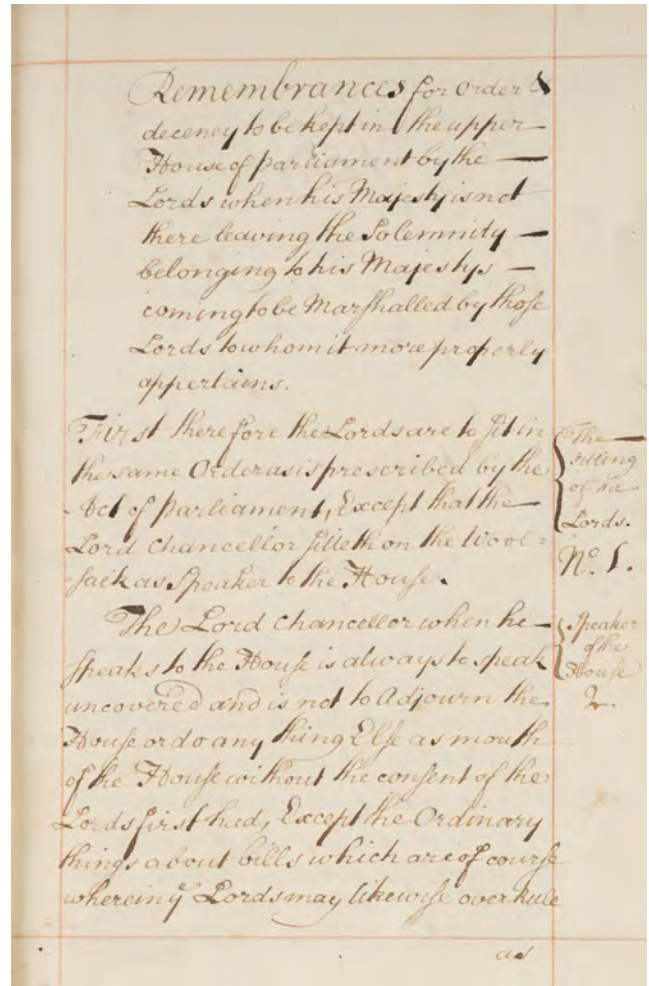 Remembrances for order &
decency to be kept in the upper
House of parliament by the
Lords when his Majesty is not
there leaving the Solemnity
belonging to his Majestys
coming to be Marshalled by those
Lords to whom it more properly
appertains.
First therefore the Lords are to sit in
the same Order as is prescribed by the
Act of parliament, Except that the
Lord Chancellor sitteth on the Wool=
sack as Speaker to the House.
The Sitting of the Lords.
No. 1.
The Lord Chancellor when he
speaks to the House is always to speak
uncovered and is not to Adjourn the
House or do any thing Else as mouth
of the House without the consent of the
Lords first had, Except the Ordinary
things about bills which are of course
wherein ye Lords may likewise over Rule
Speaker
of the
House
2.
as